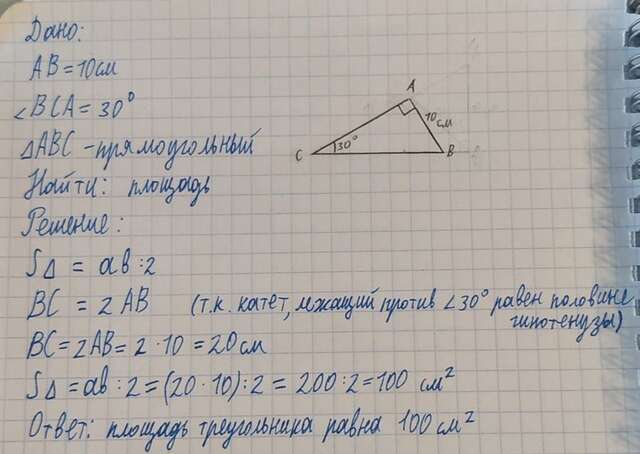 Дано:
AB=10см
∠BCA=30°
△ABC-прямоугольный
Найти: площадь
Решение:
S△ = ab:2
BC = 2AB (т.к. катет, лежащий против ∠30° равен половине
гипотенузы)
BC=2AB=2·10=20см
S△=ab:2=(20·10):2=200:2=100 см²
Ответ: площадь треугольника равна 100см²
A
10см
C
30°
B